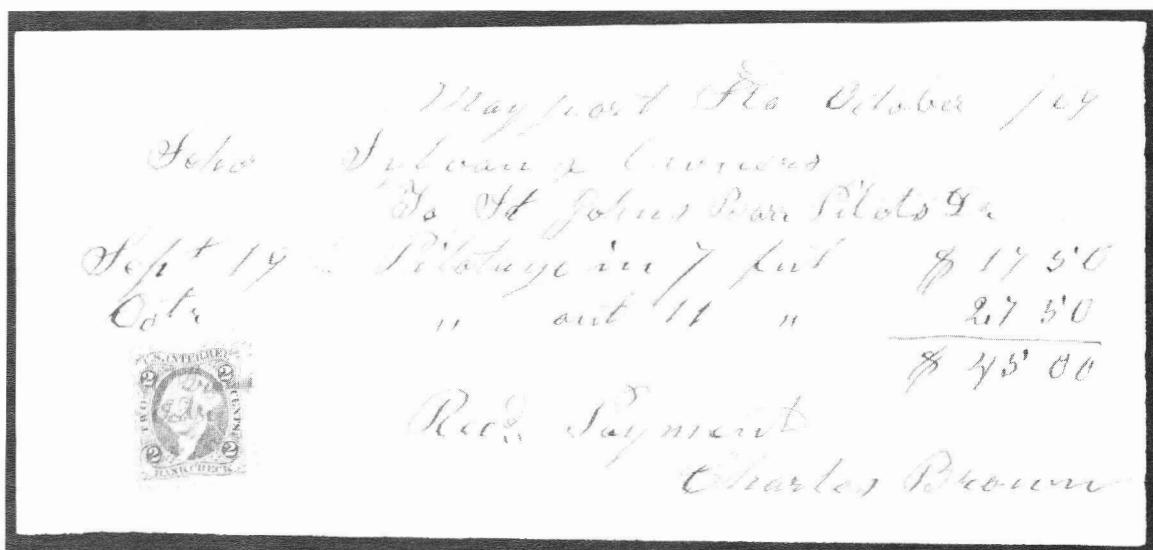 Mayport Fla October /69
Schr Sylvan & Owners
To St Johns Bar Pilots Dr
Sept 19 Pilotage in 7 feet $ 17 50
Octr " out 11 " 27 50
$ 45 00
Recd Payment
Charles Brown
U.S. INTER. REV.
TWO CENTS
2 2 2 2
BANK CHECK